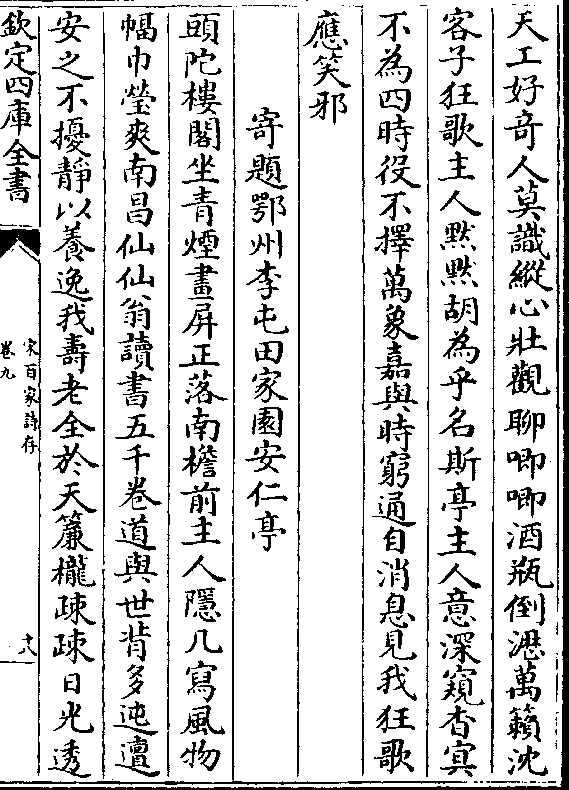 天工好竒人莫識縱心壯觀聊唧唧酒瓶倒灑萬籟沈
客子狂歌主人黙黙胡為乎名斯亭主人意深窺杳冥
不為四時役不擇萬象嘉與時窮通自消息見我狂歌
應笑邪
寄題鄂州李屯田家園安仁亭
頭陀樓閣坐青煙畫屏正落南檐前主人隱几寫風物
幅巾瑩爽南昌仙仙翁讀書五千卷道與世背多迍邅
安之不擾靜以養逸我壽老全於天簾櫳疎疎日光透
欽定四庫全書
宋百家詩存
卷九
十八